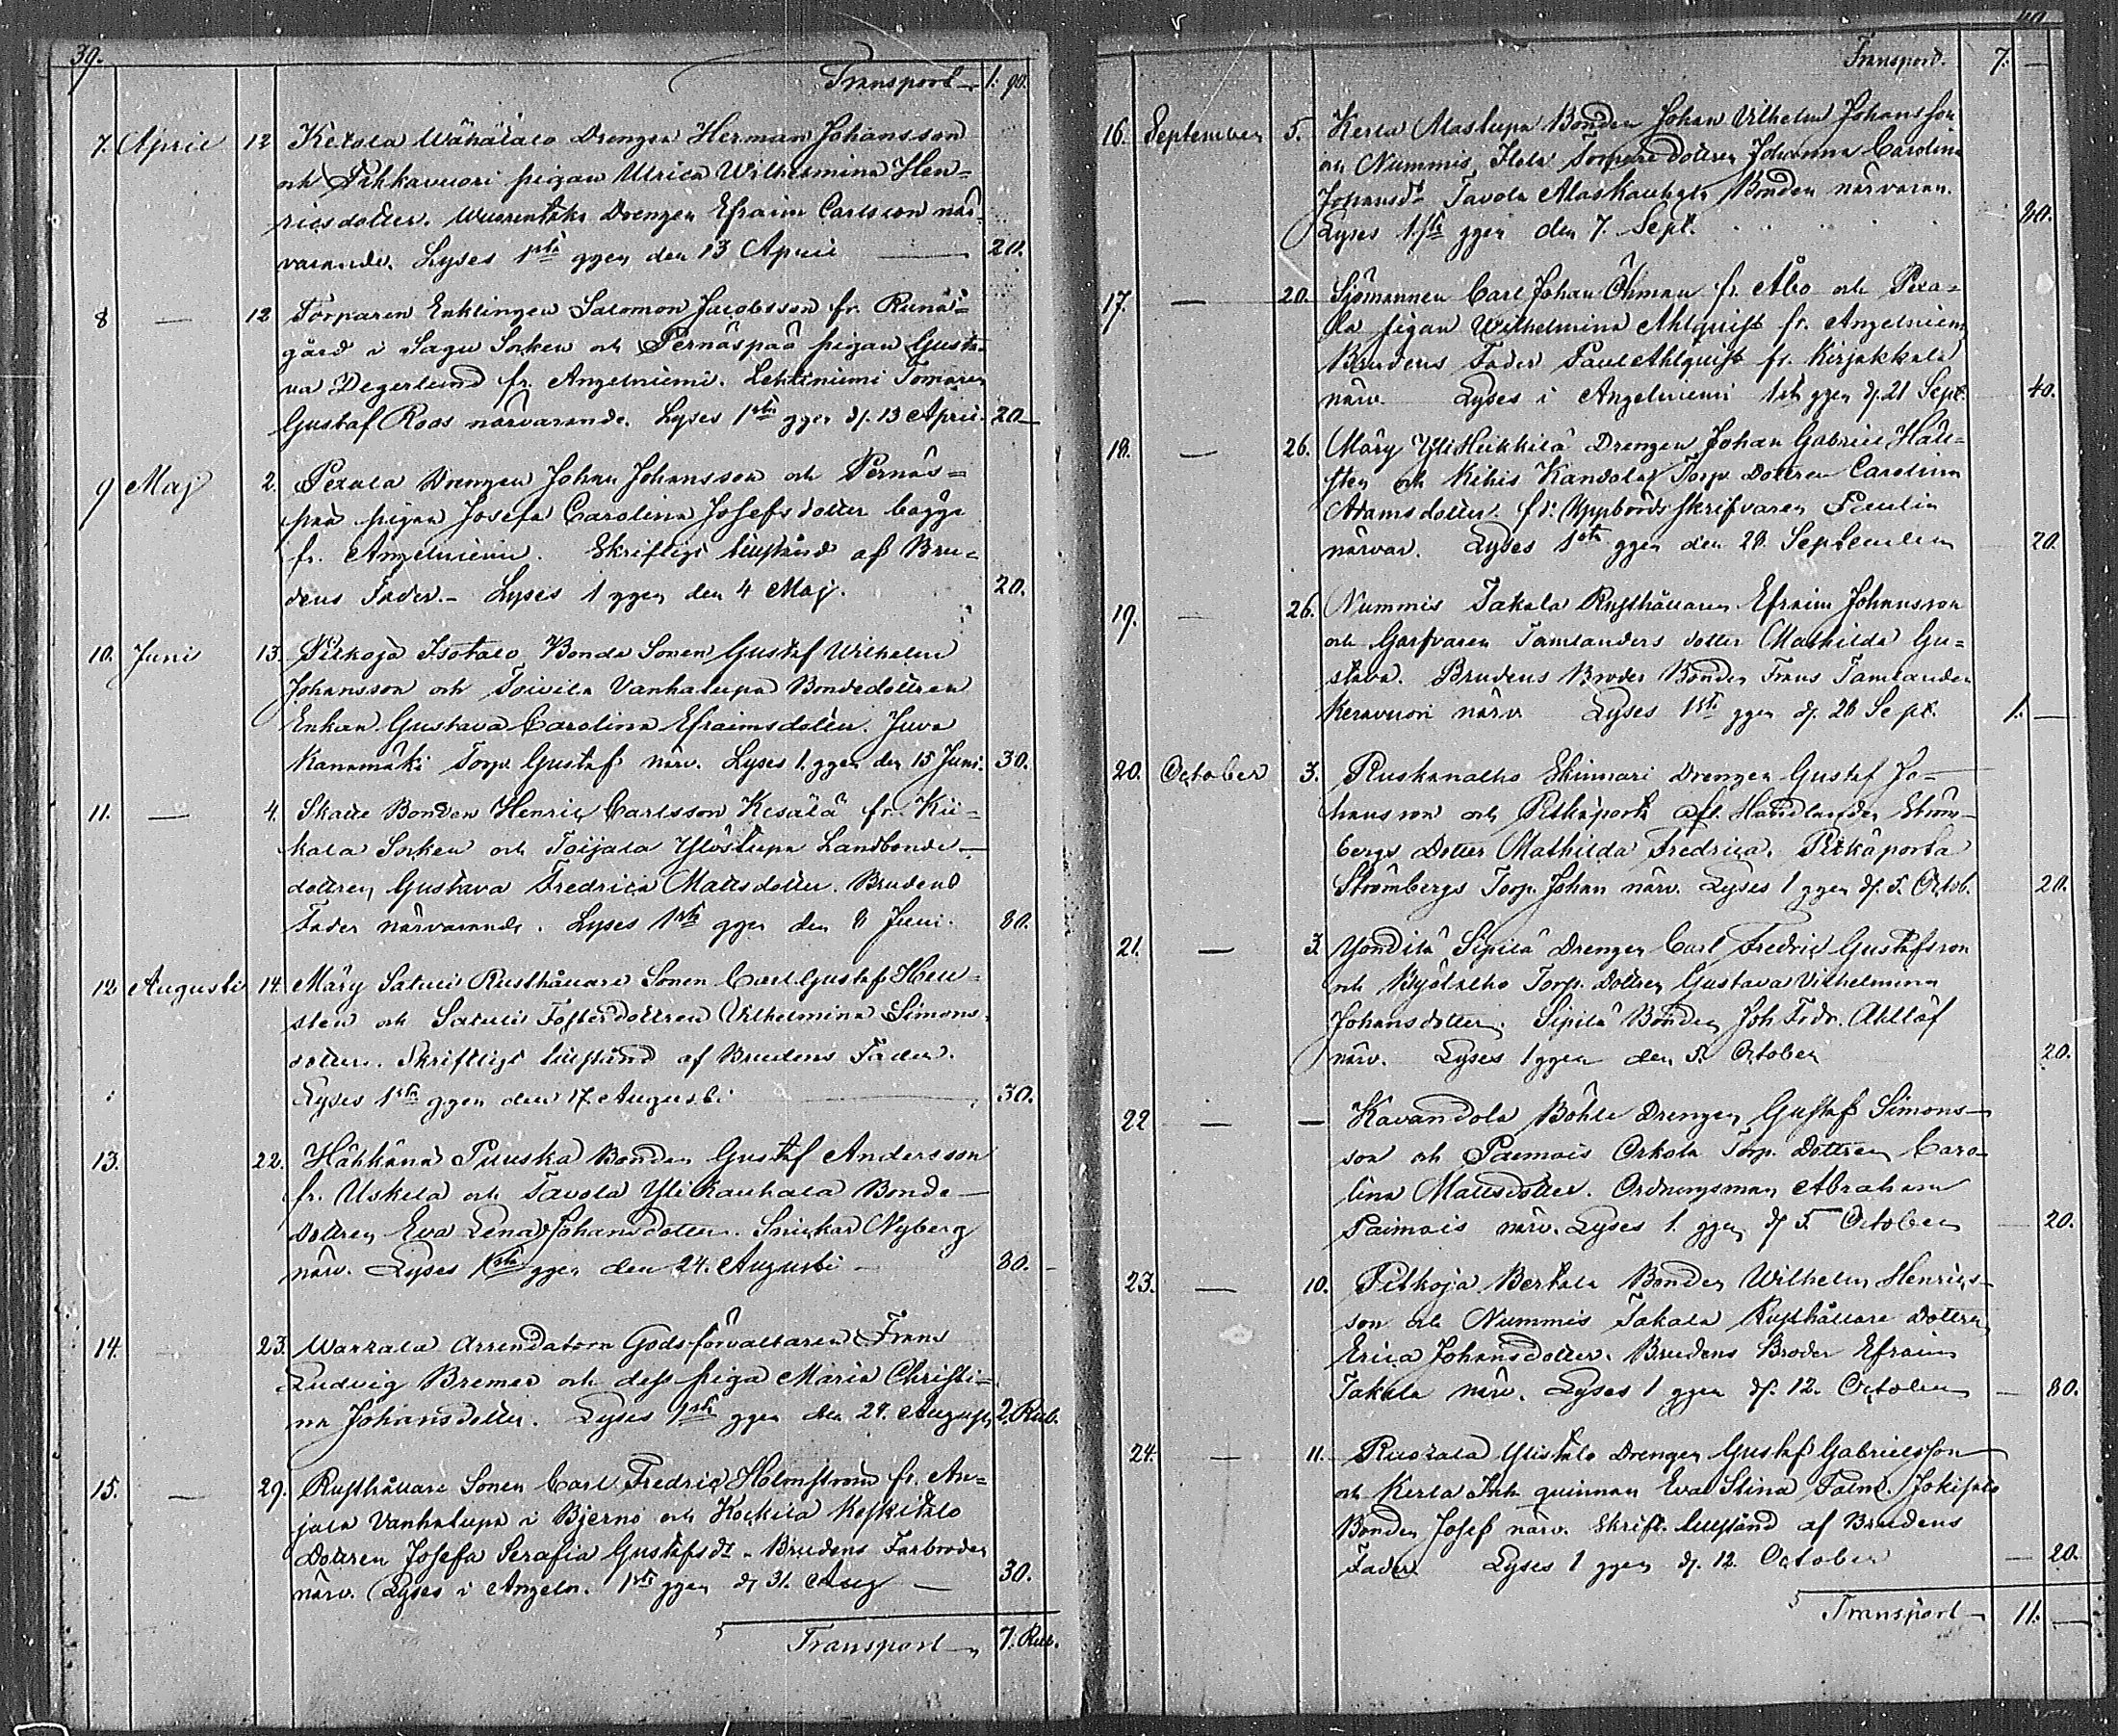 39.
Transport 1. 90.
7. April 12 Ketola Wähätalo Drengen Herman Johansson
och Pihkavuori pigan Ulrica Wilhelmina Hen-
ricsdotter. Wuorentaka Drengen Efraim Carlsson när-
varande. Lyses 1sta ggen den 13 April 20.
8 — 12 Torparen Enklingen Salomon Jacobsson fr.
gård i Sagu Socken och Pernäspää pigan Gusta-
va Degerlund fr. Angelniemi. Lehtiniemi
Gustaf Roos närvarande. Lyses 1sta ggen d. 13 April. 20
9 Maj 2. Pexala Drengen Johan Johansson och Pernäs-
pää pigan Josefa Carolina Josefsdotter bägge
fr. Angelniemi. Skriftligt tillstånd af Bru-
dens Fader. – Lyses 1 ggen den 4 Maj. 20.
10. Juni 13. Pitkoja Isotalo Bonde Sonen Gustaf Wilhelm
Johansson och Toivila Vanhatupa Bondedottren
Enkan Gustava Carolina Efraimsdotter. Juva
Kanamäki Torp. Gustaf närv. Lyses 1. ggen den 15 Juni. 30.
11. — 4. Skatte Bonden Henric Carlsson Kesälä fr. Kii-
kala Socken och Toijala Ylöstupa Landbonde-
dottren Gustava Fredrica Mattsdotter. Brudens
Fader närvarande. Lyses 1sta ggen den 8 Juni. 80.
12. Augusti 14. Märy Satuli Rusthållare Sonen Carl Gustaf Hell-
sten och Satuli Fosterdottren Vilhelmina Simons-
dotter. Skriftligt tillstånd af Brudens Fader.
Lyses 1sta ggen den 17. Augusti 30.
13. 22. Hähkänä Puuska Bonden Gustaf Andersson
fr. Uskela och Tavola Ylikauhala Bonde-
dottren Eva Lena Johansdotter. Snickar Nyberg
närv. Lyses 1sta ggen den 24. Augusti — 80.
14. 23. arrendatorn Godsförvaltaren Frans
Ludvig Bremer och dess piga Maria Christi-
na Johansdotter. Lyses 1sta ggen den 24. August. 2. Rub.
15. — 29. Rusthållare Sonen Carl Fredric Holmström fr. An-
jala Vanhatupa i Bjerno och Kokkila Keskitalo
Dottren Josefa Serafia Gustafsdr. Brudens Farbroder
närv. Lyses i Angeln. 1sta ggen d. 31. Aug — 30.
Transport 7. Rub.
Transport. 7. —
16. September 5. Kerta Alastupa Bonden Johan Vilhelm Johansson
och Nummis Torpare dottren Johanna Carolina
Johansdr. Tavola Alaskauhala Bonden närvaran.
Lyses 1sta ggen den 7. Sept. 80.
17. — 20. Sjömannen Carl Johan Öhman fr. Åbo och Pexa-
la pigan Wilhelmina Ahlquist fr. Angelniemi
Brudens Fader Paul Ahlquist fr. Kirjakkala
närv. Lyses i Angelniemi 1sta ggen d. 21 Sept. 40.
18. — 26. Märy Yli Heikkilä Drengen Johan Gabriel Häll-
sten och Kihis Kandola Torp. dottren Carolina
Adamsdotter. fd. Uppbördsskrifvaren Paulin
närvar. Lyses 1sta ggen den 28. September 20.
19. — 26. Nummis Takala Rusthållaren Efraim Johansson
och Garfvaren Tamlanders dotter Mathilda Gu-
stava. Brudens Broder Bonden Frans Tamlander
Keravuori närv. Lyses 1sta ggen d. 28 Sept. 1. —
20. October 3. Ruskanalho Skinnari Drengen Gustaf Jo-
hansson och Pitkäporta afl. Handlanden Ström-
bergs Dotter Mathilda Fredrica. Pitkäporta
Strömbergs Torp. Johan närv. Lyses 1 ggen d. 5. Octob. 20.
21. — 3. Yöndilä Sipilä Drengen Carl Fredric Gustafsson
och Torp. dottren Gustava Vilhelmina
Johansdotter. Sipilä Bonden Joh. Fredr. Ahllöf
närv. Lyses 1 ggen den 5. October 20.
22 — — Kavandola Böhle Drengen Gustaf Simons-
son och Paimais Orkola Torp. Dottren Caro-
lina Mattsdotter. Ordningsman Abraham
Paimais närv. Lyses 1. ggen d. 5 October 20.
23. — 10. Pitkoja Bertala Bonden Wilhelm Henrics-
son och Nummis Takala Rusthållare dottren
Erica Johansdotter. Brudens Broder Efraim
Takala närv. Lyses 1 ggen d. 12. October — 80.
24. — 11. Ruotala Ylistalo Drengen Gustaf Gabrielsson
och Kerta Inh. quinnan Eva Stina Palm. Jokisalo
Bonden Josef närv. Skrift. tillstånd af Brudens
Fader. Lyses 1 ggen d. 12. October — 20.
Transport 11. —